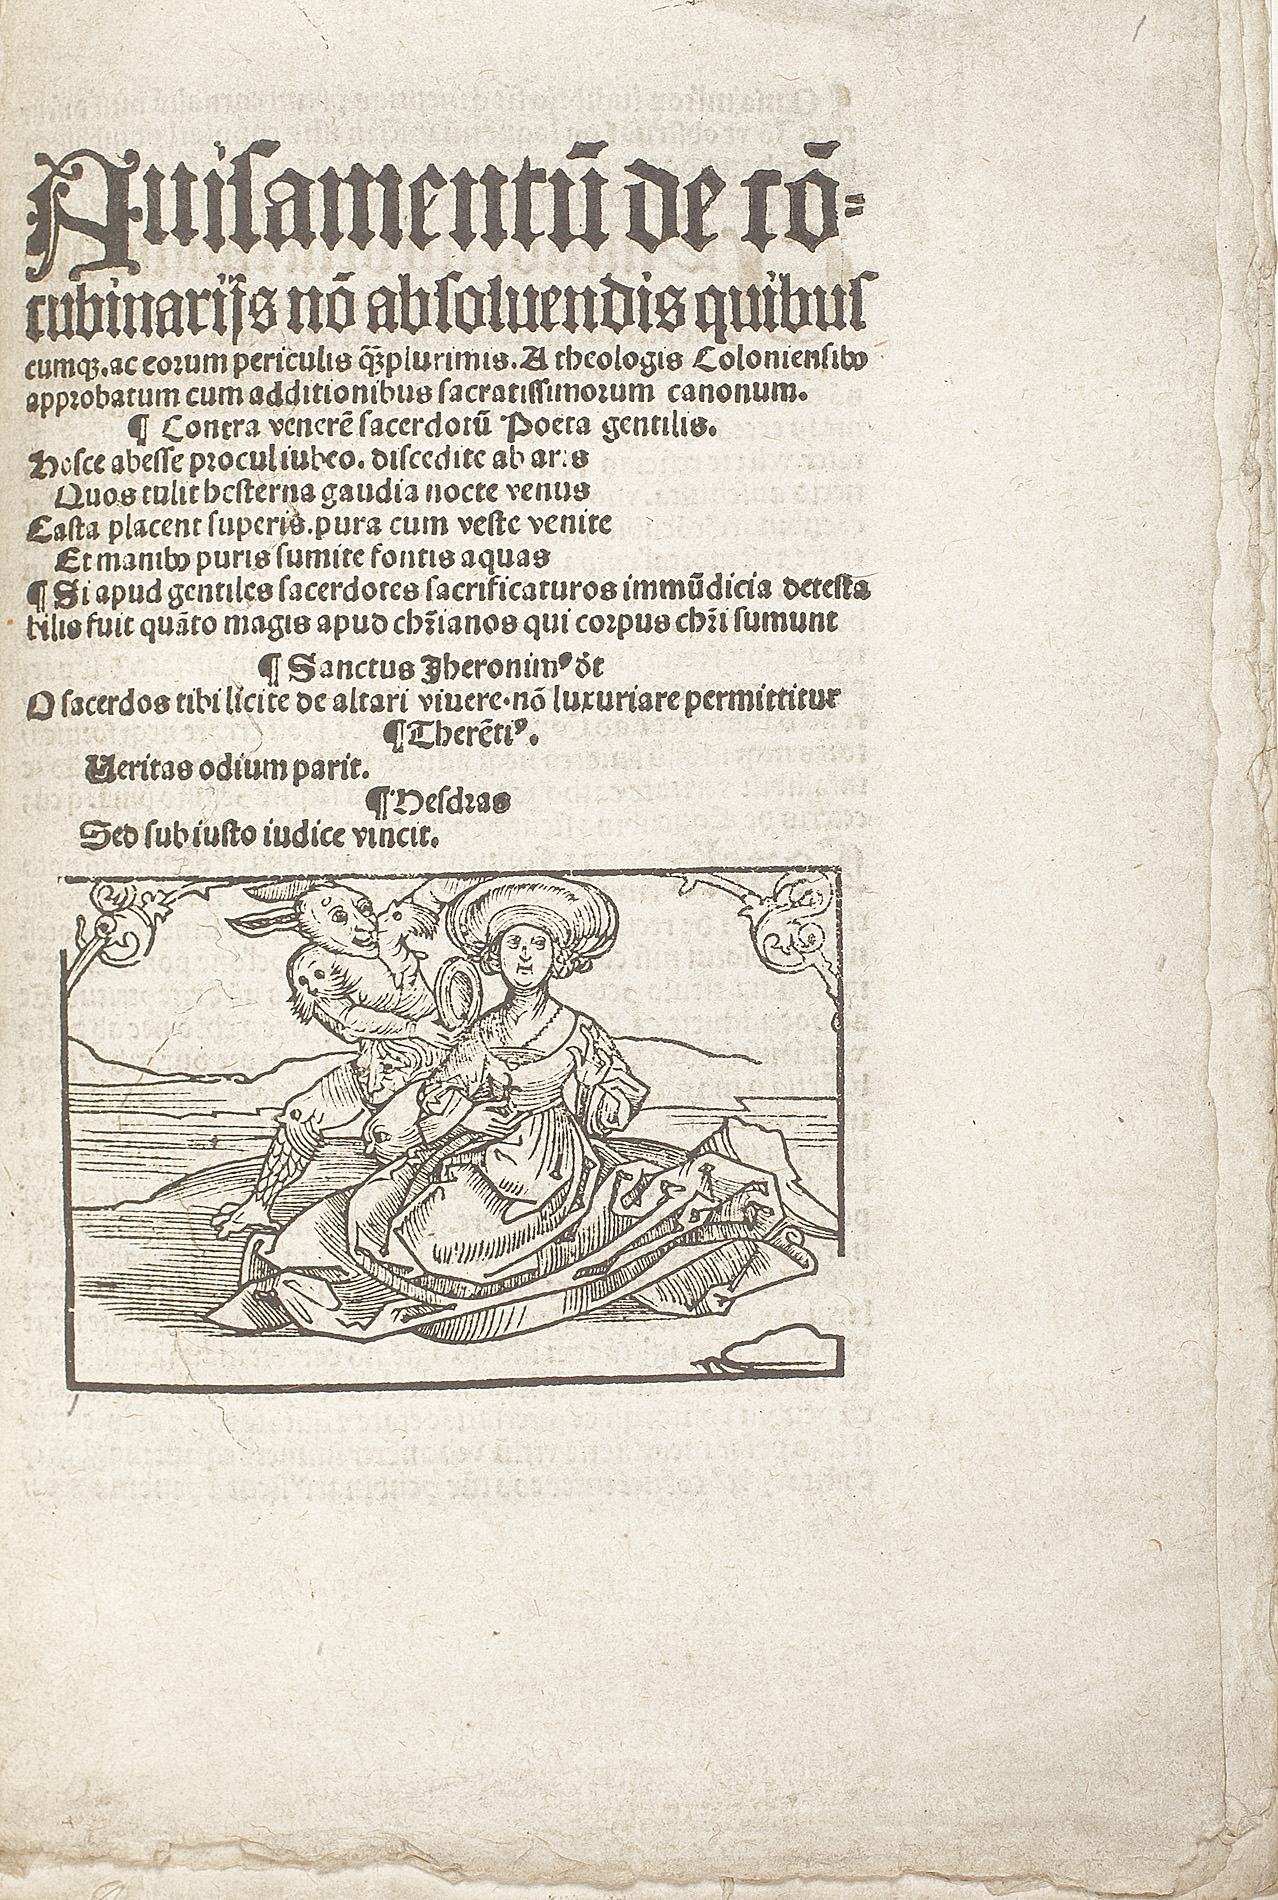 Auisamentū de cō⸗
cubinarijs nō absoluendis quibus
cumqꝫ. ac eorum periculis qꝫplurimis. A theologis Coloniensibꝰ
approbatum cum additionibus sacratissimorum canonum.
¶ Contra venerē sacerdotū Poeta gentilis.
Hosce abesse procul iubeo. discedite ab aris
Quos tulit hesterna gaudia nocte venus
Casta placent superis. pura cum veste venite
Et manibꝰ puris sumite fontis aquas
¶ Si apud gentiles sacerdotes sacrificaturos immūdicia detesta
bilis fuit quāto magis apud chr̄ianos qui corpus chr̄i sumunt
¶ Sanctus Jheronimꝰ dt̄
O sacerdos tibi licite de altari viuere. nō luxuriare permittitur
¶ Therētiꝰ.
Veritas odium parit.
¶ Hesdras
Sed sub iusto iudice vincit.